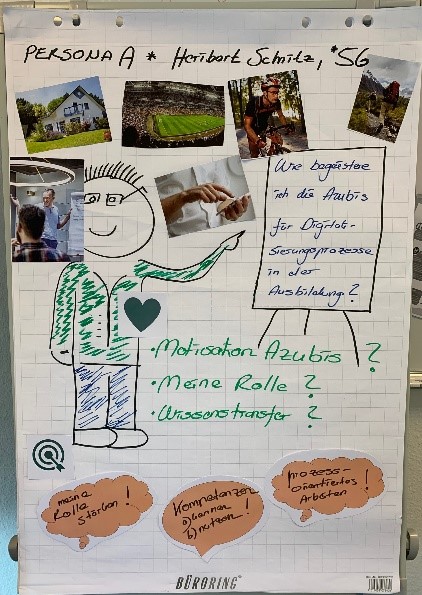 PERSONA A * Heribert Schmitz, *56
Wie begeistere
ich die Azubis
für Digitali-
sierungsprozesse
in der
Ausbildung?
• Motivation Azubis ?
• Meine Rolle ?
• Wissenstransfer ?
meine
Rolle
stärken!
Kompetenzen
a) kennen
b) nutzen!
prozess-
orientiertes
Arbeiten!
BÜRORING